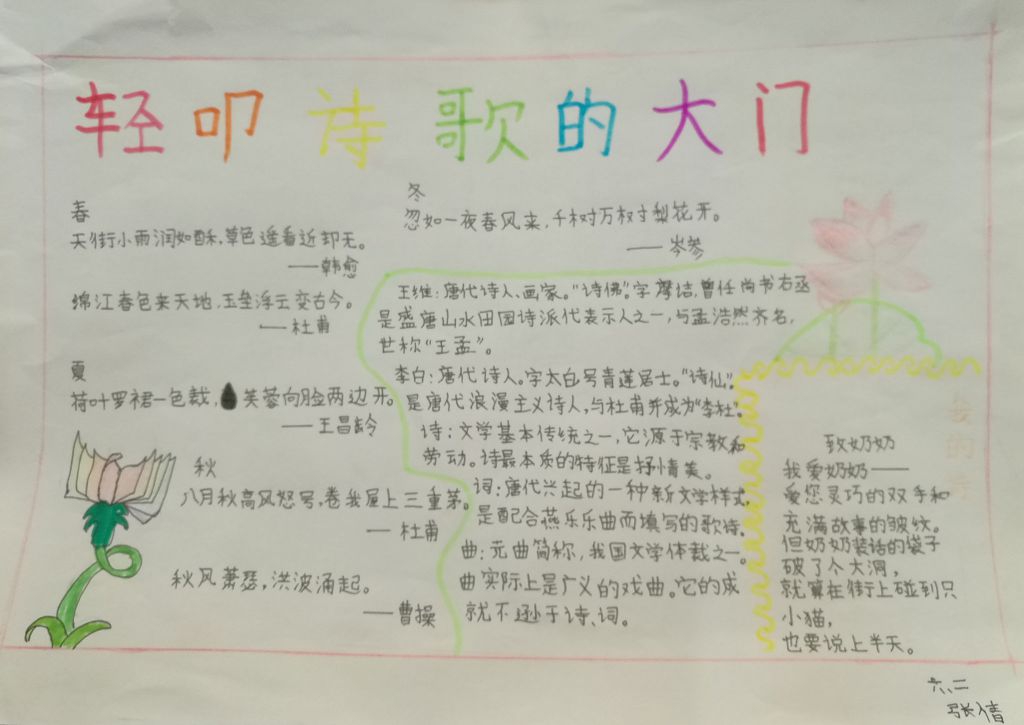 轻叩诗歌的大门
春
天街小雨润如酥,草色遥看近却无。
——韩愈
锦江春色来天地,玉垒浮云变古今。
——杜甫
夏
荷叶罗裙一色裁,芙蓉向脸两边开。
——王昌龄
秋
八月秋高风怒号,卷我屋上三重茅。
——杜甫
秋风萧瑟,洪波涌起。
——曹操
冬
忽如一夜春风来,千树万树梨花开。
——岑参
王维:唐代诗人、画家。“诗佛”。字摩诘,曾任尚书右丞
是盛唐山水田园诗派代表示人之一,与孟浩然齐名,
世称“王孟”。
李白:唐代诗人。字太白号青莲居士。“诗仙”。
是唐代浪漫主义诗人,与杜甫并成为“李杜”。
诗:文学基本传统之一,它源于宗教和
劳动。诗最本质的特征是抒情美。
词:唐代兴起的一种新文学样式,
是配合燕乐乐曲而填写的歌诗。
曲:元曲简称,我国文学体裁之一。
曲实际上是广义的戏曲。它的成
就不逊于诗、词。
我的诗
致奶奶
我爱奶奶——
爱您灵巧的双手和
充满故事的皱纹。
但奶奶装话的袋子
破了个大洞,
就算在街上碰到只
小猫,
也要说上半天。
六、二